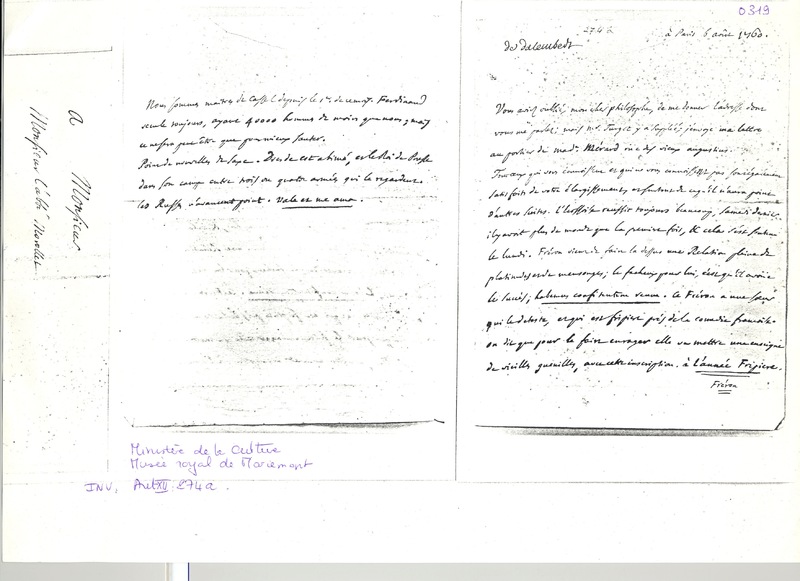 0319
274 a
à Paris 6 août 1760.
de dalembert
Vous aviez oublié, mon cher philosophe, de me donner l'adresse dont
vous me parlez; mais Mr. Turgot y a suppléé; j'envoye ma lettre
au portier de made Mérard rue des vieux augustins.
Tous ceux qui vous connoissent et qui ne vous connoissent pas sont également
satisfaits de votre élargissement et surtout de ce qu'il n'a eu point
d'autres suites. l'Ecossaise reussit toujours beaucoup, samedi dernier
il y avoit plus de monde que la premiere fois, & cela s'est soutenu
le lundi. Fréron vient de faire la dessus une Relation pleine de
platitudes et de mensonges; le facheux pour lui, c'est qu'il avoue
le succès; habemus confitentem reum. Ce Fréron a une sœur
qui le deteste, et qui est fripiere près de la comedie françoise.
on dit que pour le faire enrager elle va mettre une enseigne
de vieilles guenilles, avec cette inscription. à l'année Fripiere.
Fréron
Nous sommes maitres de Cassel depuis le 1er. de ce mois. Ferdinand
recule toujours, ayant 40000 hommes de moins que nous; mais
ce ne sera peut être que pour mieux sauter.
Point de nouvelles de Saxe. Dresde est abimé, et le Roi de Prusse
dans son camp entre trois ou quatre armées qui le regardent.
les Russes n'avancent point. Vale et me ama.
A
Monsieur
Monsieur l'abbé Morellet
Ministère de la Culture
Musée royal de Mariemont
INV. Aut. XII 274 a.